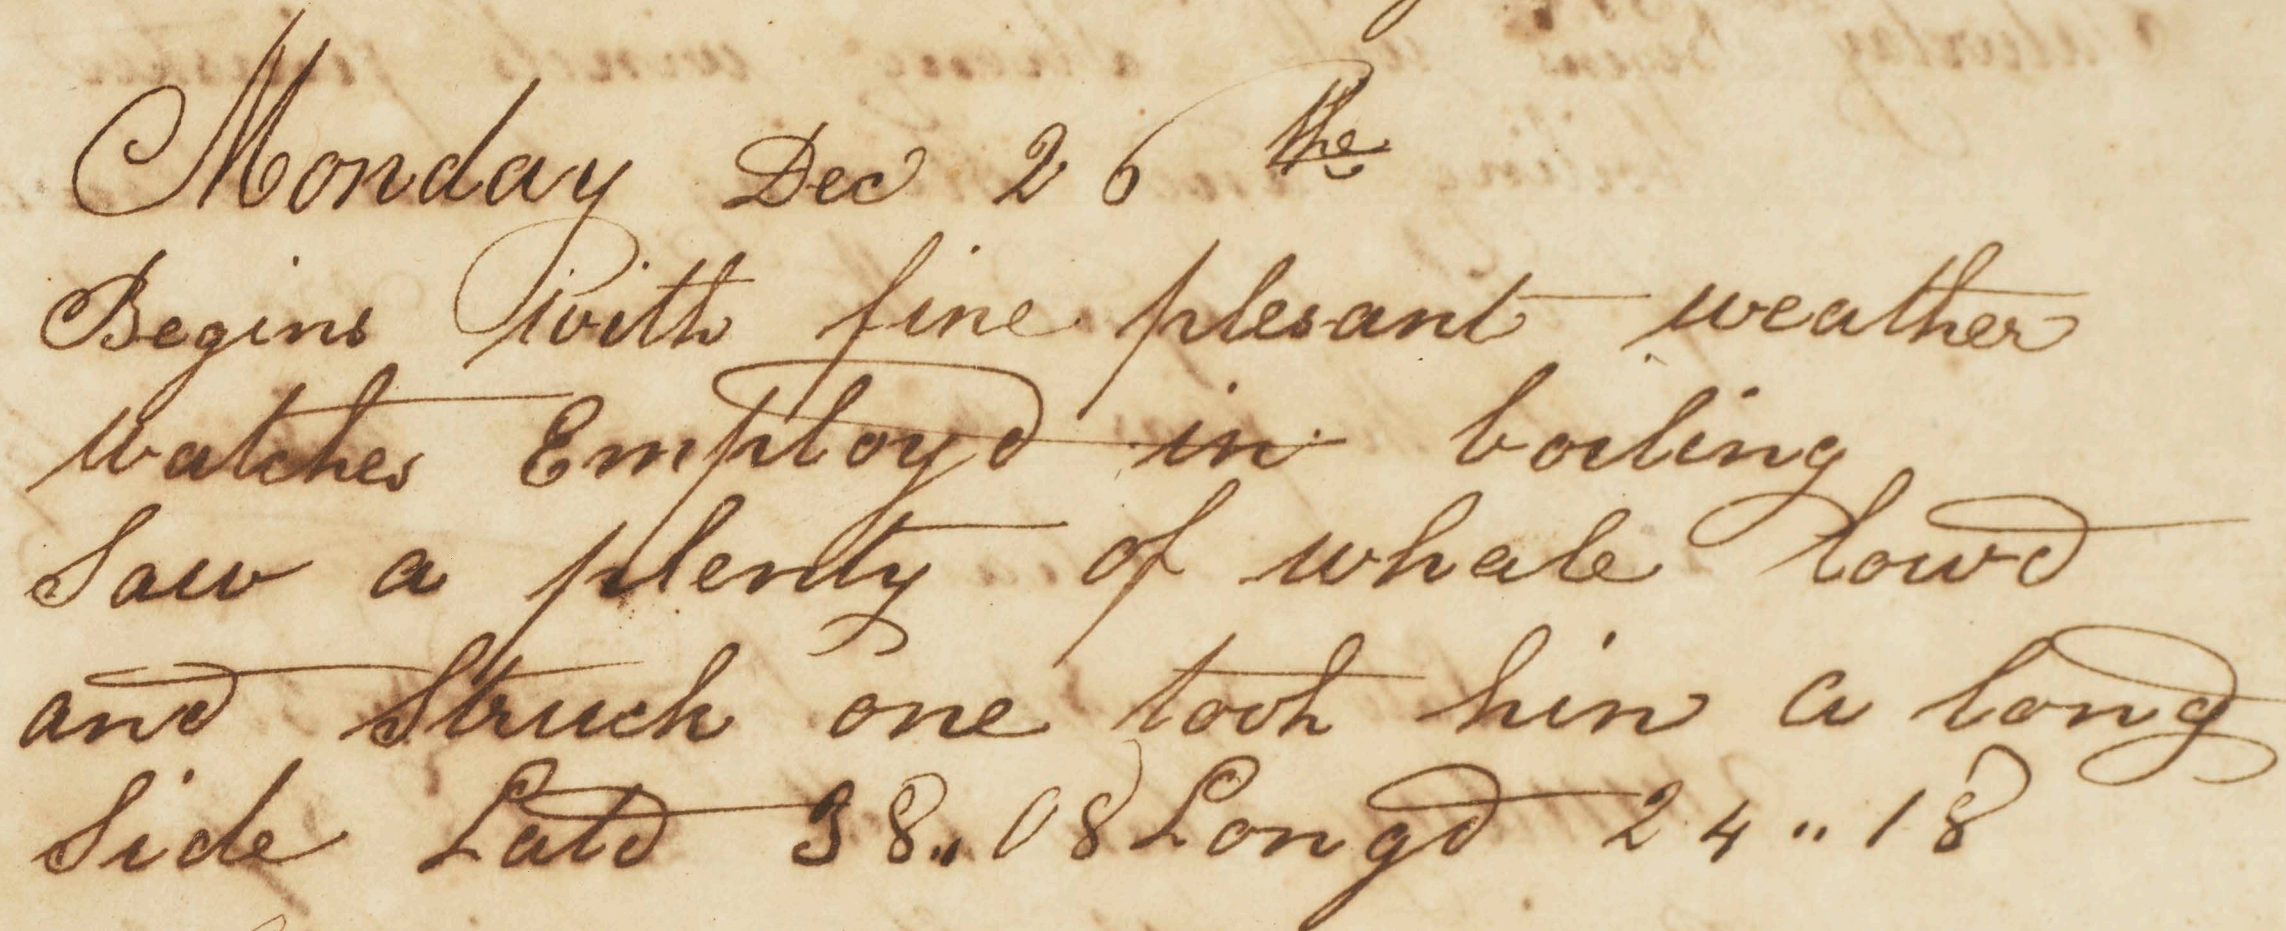 Monday Dec 26 the
Begins With fine plesant weather
watches Employd in boiling
Saw a plenty of whale lowd
and Struck one took him a long
Side Latd 38,,08 Longd 24,,18